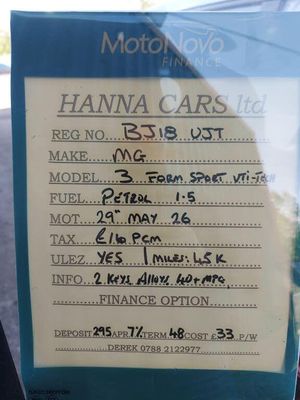 MotoNovo
FINANCE
HANNA CARS ltd
REG NO. BJ18 UJT
MAKE MG
MODEL 3 FORM SPORT VTI-TECH
FUEL PETROL 1.5
MOT. 29TH MAY 26
TAX £16 PCM
ULEZ YES MILES: 45K
INFO. 2 KEYS, ALLOYS, 40+MPG,
FINANCE OPTION
DEPOSIT 295 APR 7% TERM 48 COST £33 P/W
DEREK 0788 2122977